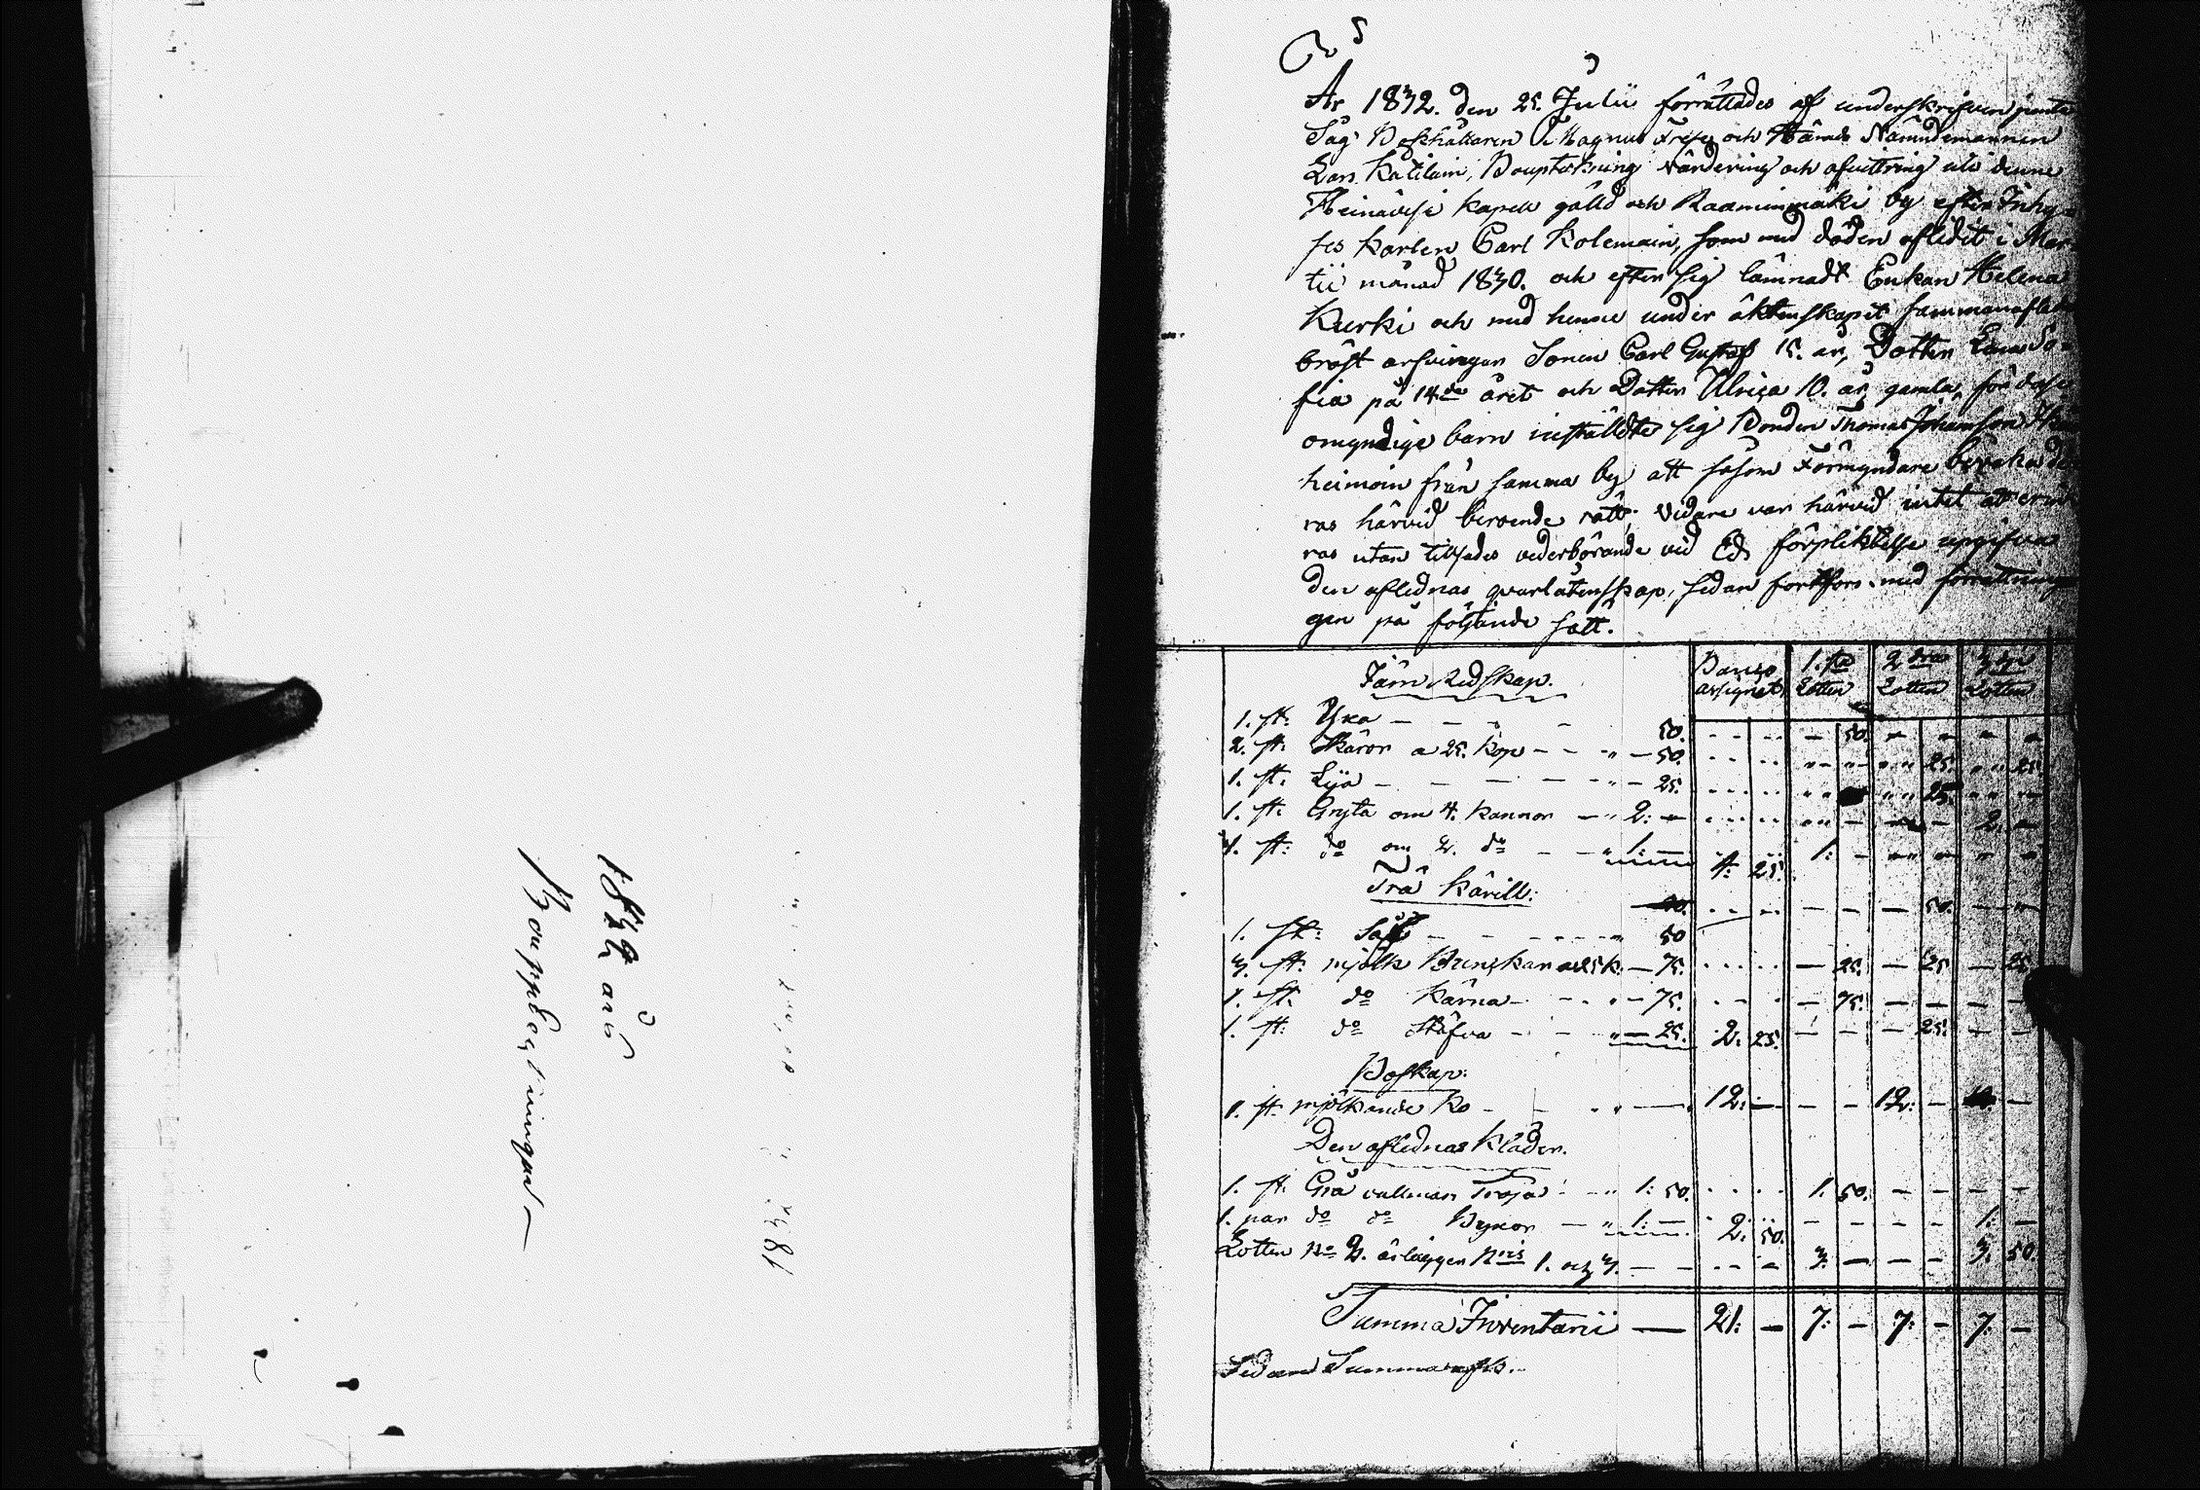 1832 års
Bouppteckningar
5
År 1832. den 25. Julii förrättades af underskrifven jemte
Såg Bokhållaren Magnus och Härads Nämndemannen
Lars Katilain, Boupteckning Värdering och afvittring uti denne
Heinävesi Kapell gälld och Raaminmäki by efter Inhy-
ses Karlen Carl Kolemain, som med döden aflidit i Mar-
tii månad 1830. och efter sig lämnadt Enkan Helena
Kurki och med henne under äktenskapet sammanaflade
bröst arfvingar Sonen Carl Gustaf 15. år, Dottren So-
fia på 14de året och Dottren Ulrica 10. år gamla, för dessa
omyndige barn inställdte sig Bonden Thomas Johansson
heimoin från samma by att såsom Förmyndare bevaka de-
ras härvid beroende rätt; Vidare var härvid intet att erin-
ras utan tillsades vederbörande vid Eds förpliktelse upgifva
den aflednas qvarlåtenskap, sedan fortfors med förrättnin-
gen på följande sätt.
Järn Redskap. 1.sta Lotten 2dra Lotten 3dje Lotten
1. st: Yxa — 50. 50.
2. st: Skäror a 25. Kop — 50. 25. 25
1. st. Lija — 25. 25.
1. st: Gryta om 4. Kannor — 2: — 2. —
1. st: do om 2. do — 1: — 4: 25. 1: —
Trä Kärill:
1. st: Så — 50 50.
3. st: mjölk a 25 k. — 75. 25. 25 25
1. st. do Kärna — 75. 75.
1. st: do Stäfva — 25. 2. 25. 25.
Boskap:
1. st. mjölkande Ko — 12: — 12: —
Den aflednas Kläder.
1. st. Grå vallmars Tröja — 1: 50. 1. 50.
1. par do do Byxor — 1: — 2. 50. 1: —
Lotten No 2. erlägger Nris 1. och 3. — 3. — 3. 50.
Summa Inventarii — 21: — 7: — 7: — 7: —